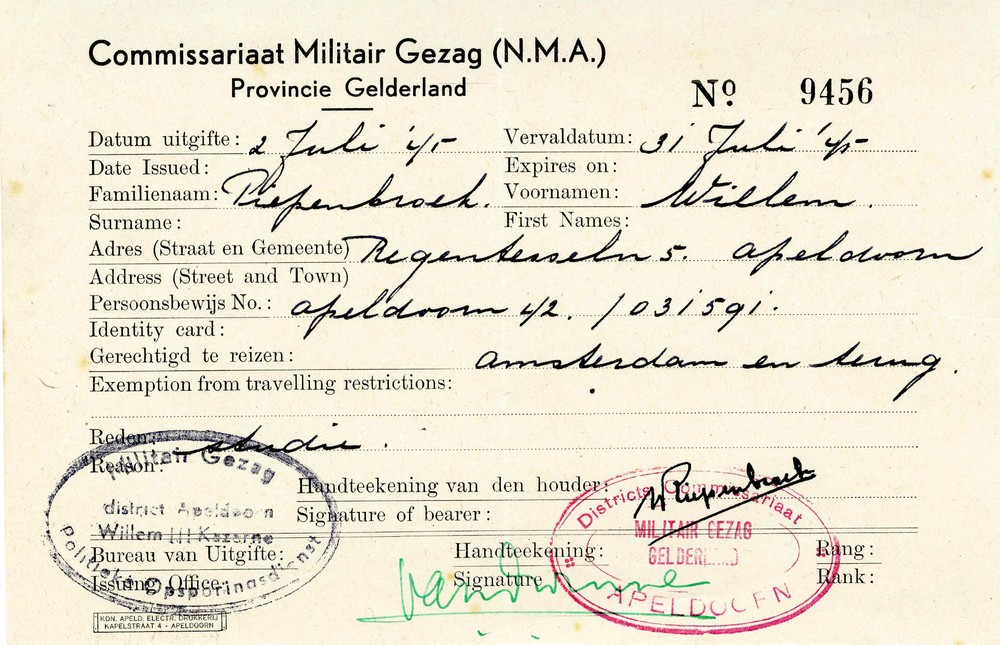 Commissariaat Militair Gezag (N.M.A.)
Provincie Gelderland
Nº 9456
Datum uitgifte: 2 Juli '45 Vervaldatum: 31 Juli '45
Date Issued: Expires on:
Familienaam: Piepenbroek. Voornamen: Willem.
Surname: First Names:
Adres (Straat en Gemeente) Regentesseln 5. Apeldoorn
Address (Street and Town)
Persoonsbewijs No.: Apeldoorn 42. / 031591.
Identity card:
Gerechtigd te reizen: Amsterdam en terug.
Exemption from travelling restrictions:
Reden: studie.
Reason:
Handteekening van den houder: W Piepenbroek
Signature of bearer:
Bureau van Uitgifte: Handteekening: Rang:
Issuing Office: Signature Rank:
Militair Gezag
district Apeldoorn
Willem III Kazerne
Politieke Opsporingsdienst
Districts Commissariaat
MILITAIR GEZAG
GELDERLAND
APELDOORN
KON. APELD. ELECTR. DRUKKERIJ
KAPELSTRAAT 4 - APELDOORN